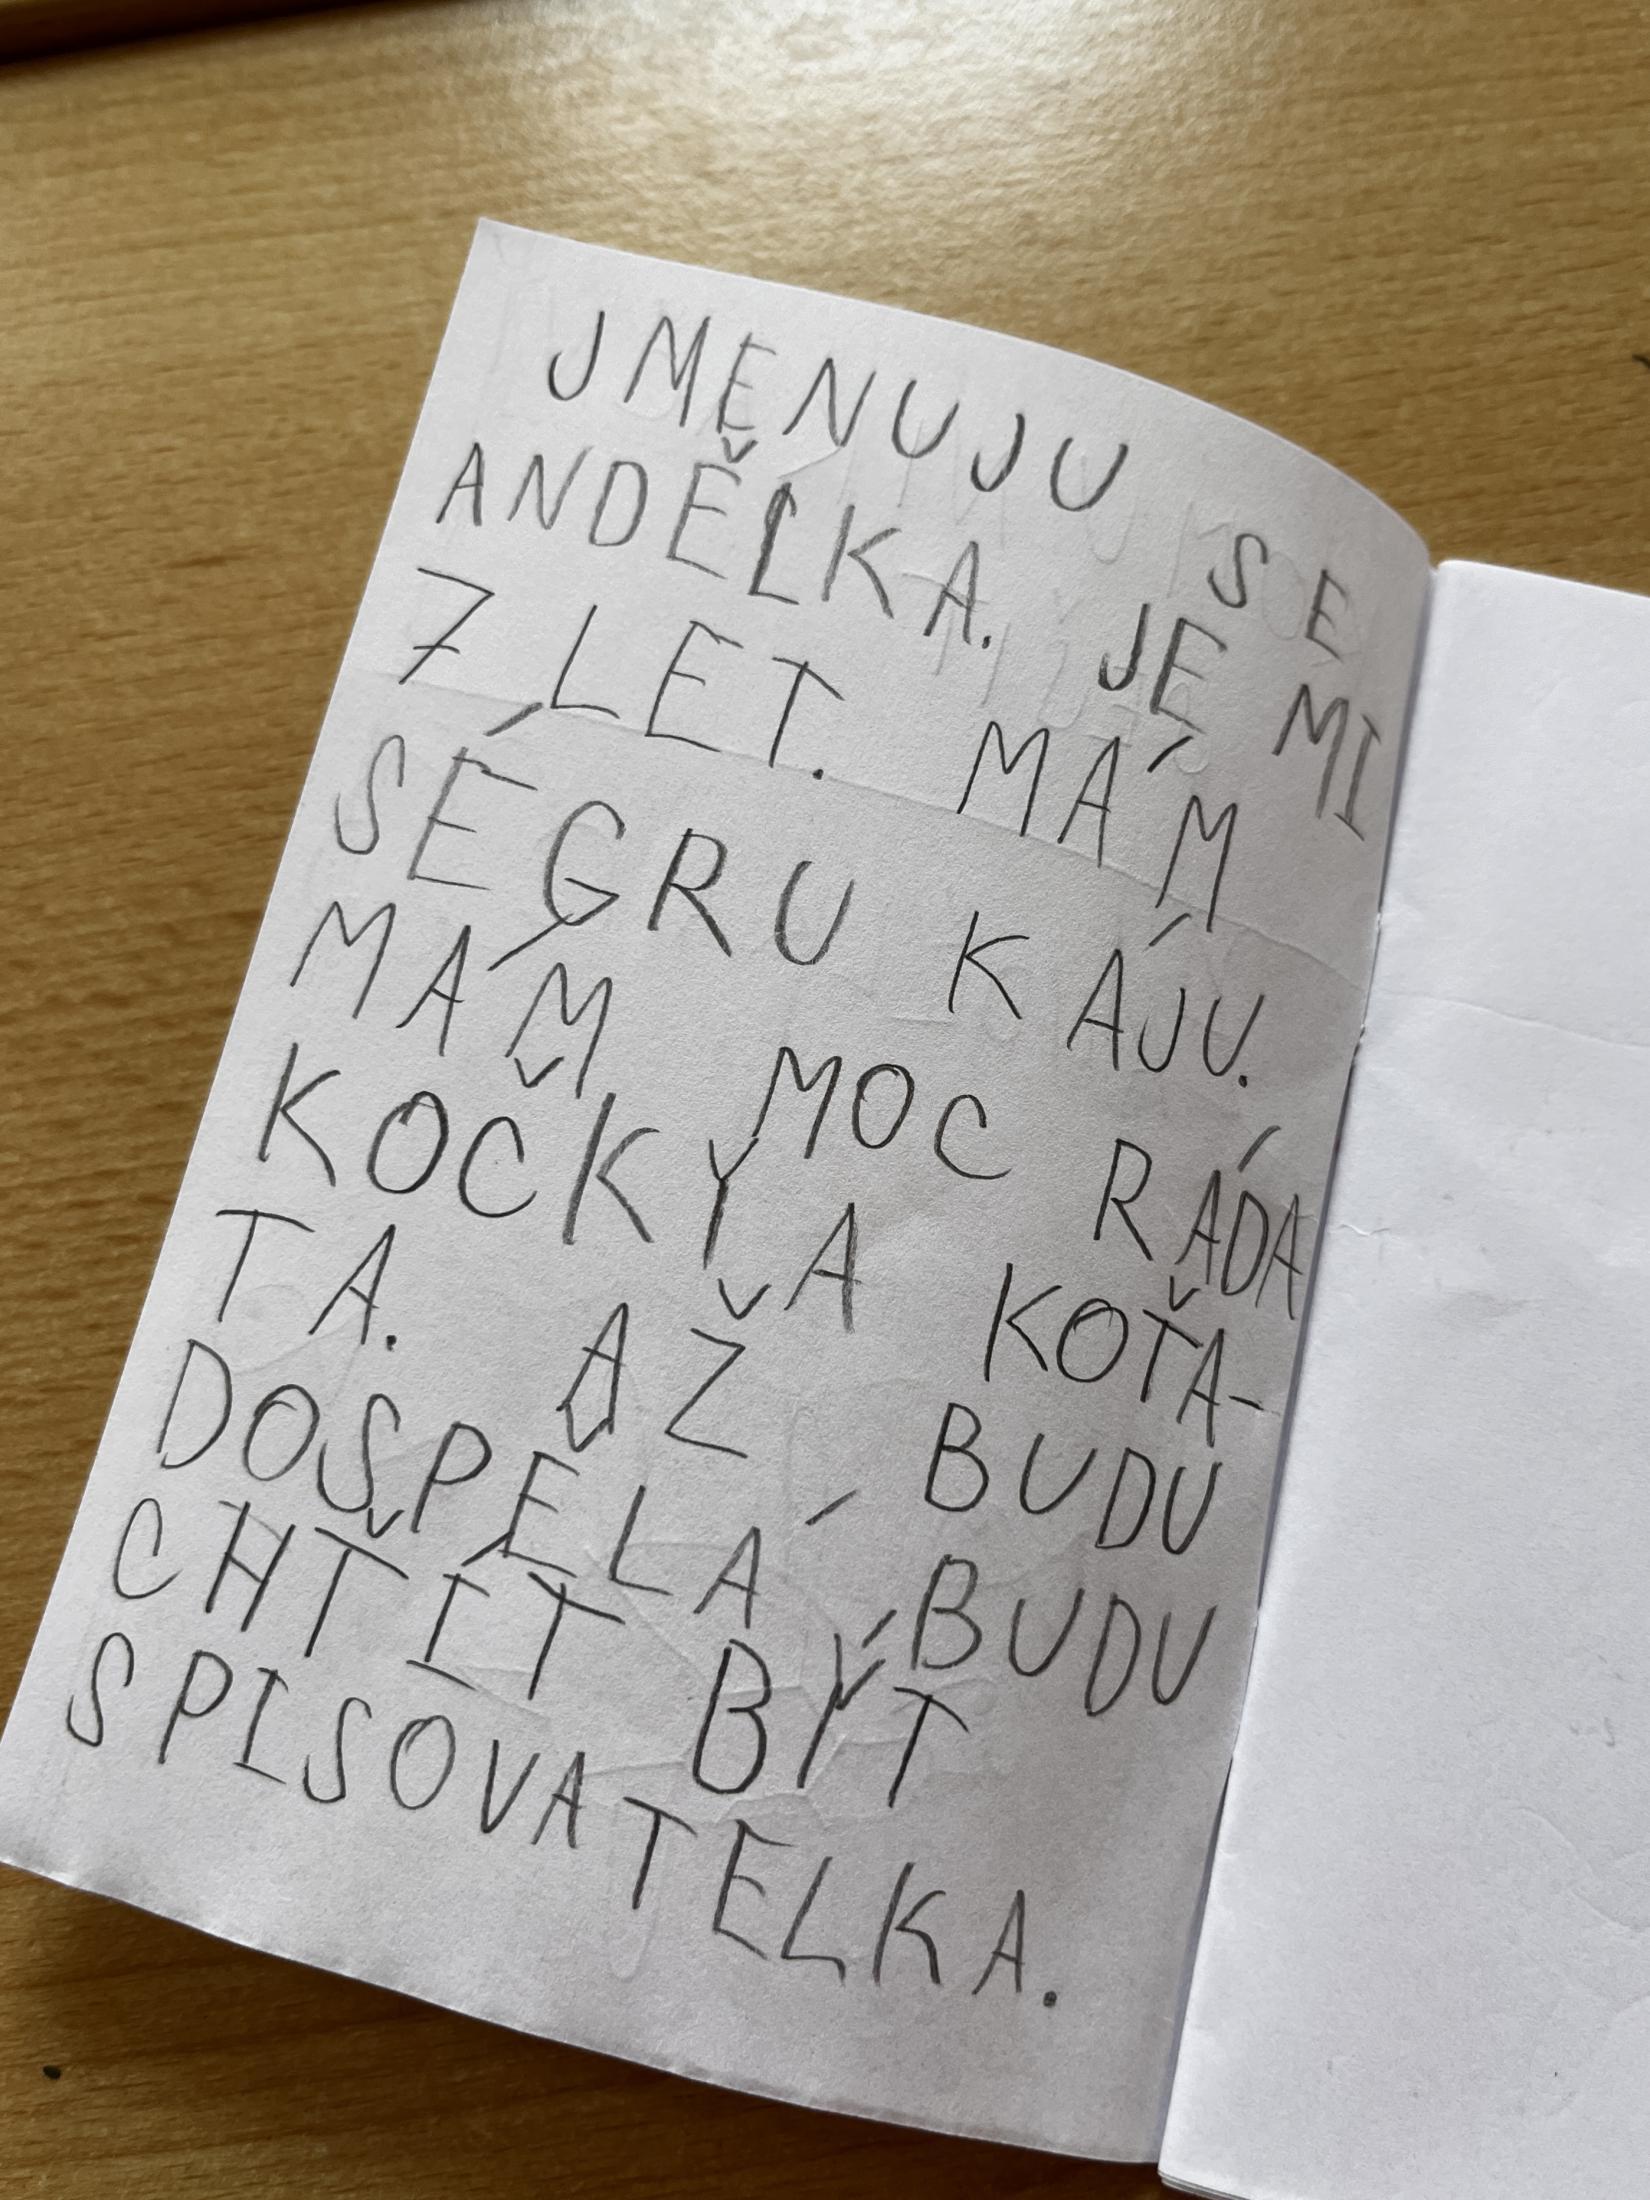 JMENUJU SE
ANDĚLKA. JE MI
7 LET. MÁM
SÉGRU KÁJU.
MÁM MOC RÁDA
KOČKY A KOŤA-
TA. AŽ BUDU
DOSPĚLÁ BUDU
CHŤÍT BÝT
SPISOVATELKA.